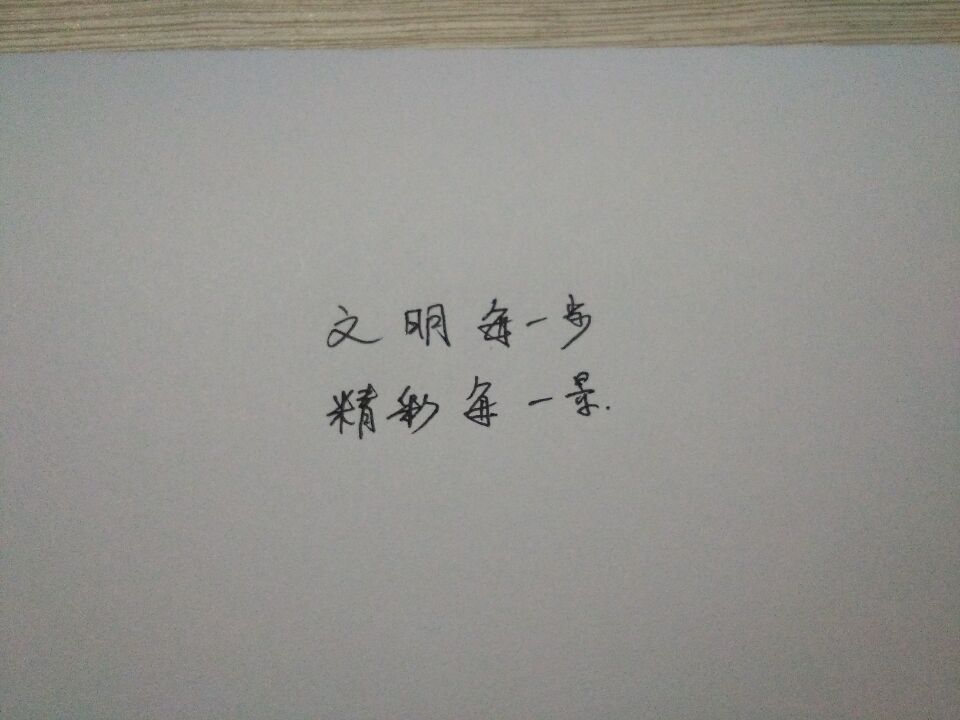 文明每一步
精彩每一景.